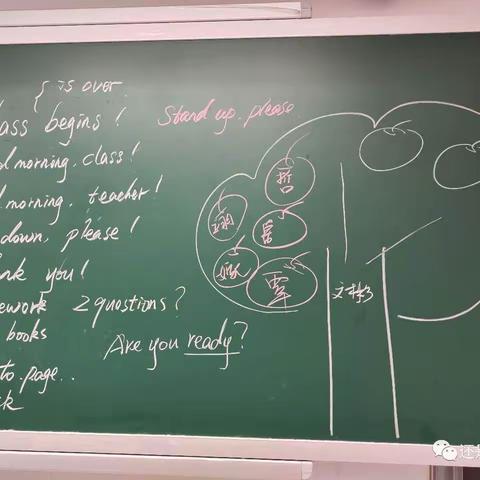 { is over.
lass begins!
Stand up, please.
d morning, class!
d morning, teacher!
down, please!
nk you!
ework 2 questions?
books
Are you ready?
to page..
哲
覃